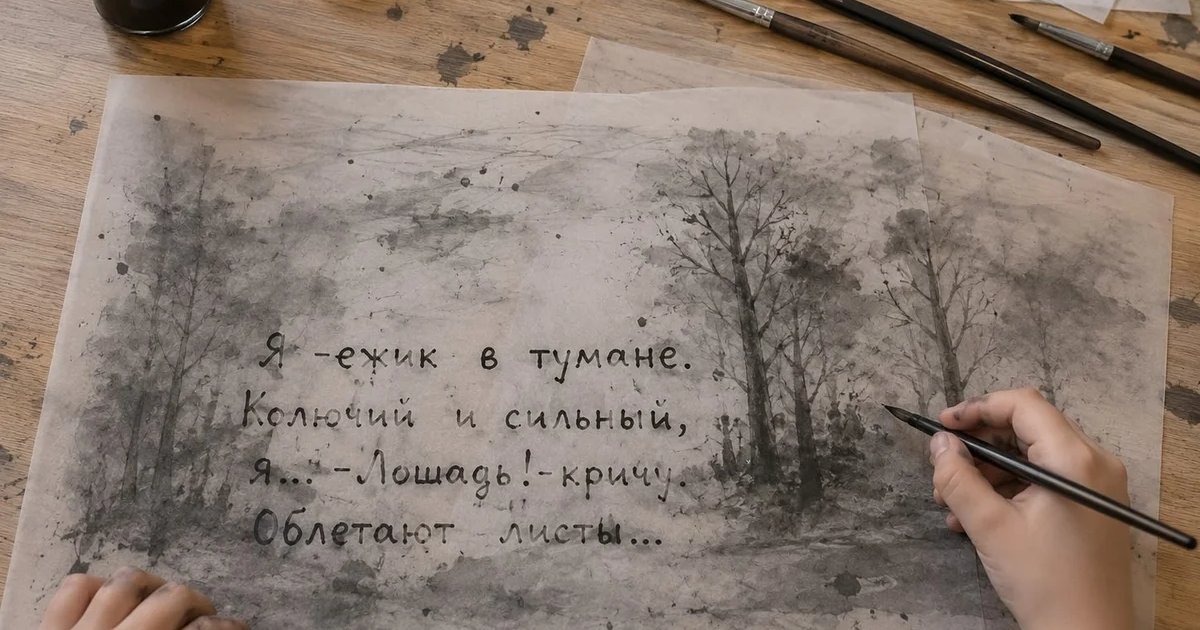 Я -ежик в тумане.
Колючий и сильный,
я... -Лошадь!-кричу.
Облетают листы...